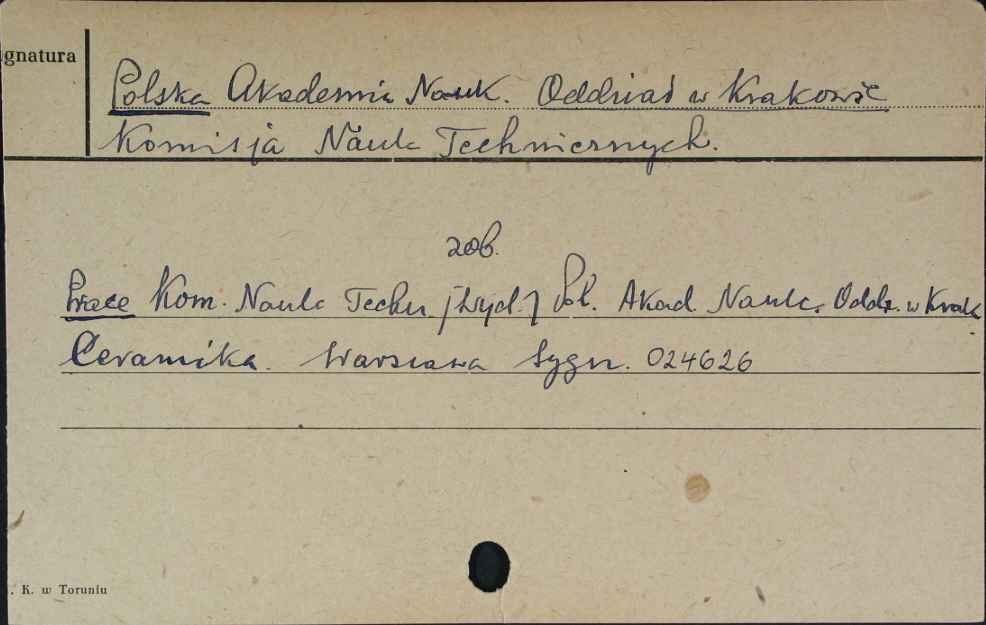 gnatura
Polska Akademia Nauk. Oddział w Krakowie
Komisja Nauk Technicznych.
zob.
Prace Kom. Nauk Techn. [Wyd.] Pol. Akad. Nauk. Oddz. w Krak
Ceramika. Warszawa Sygn. 024626
. K. w Toruniu